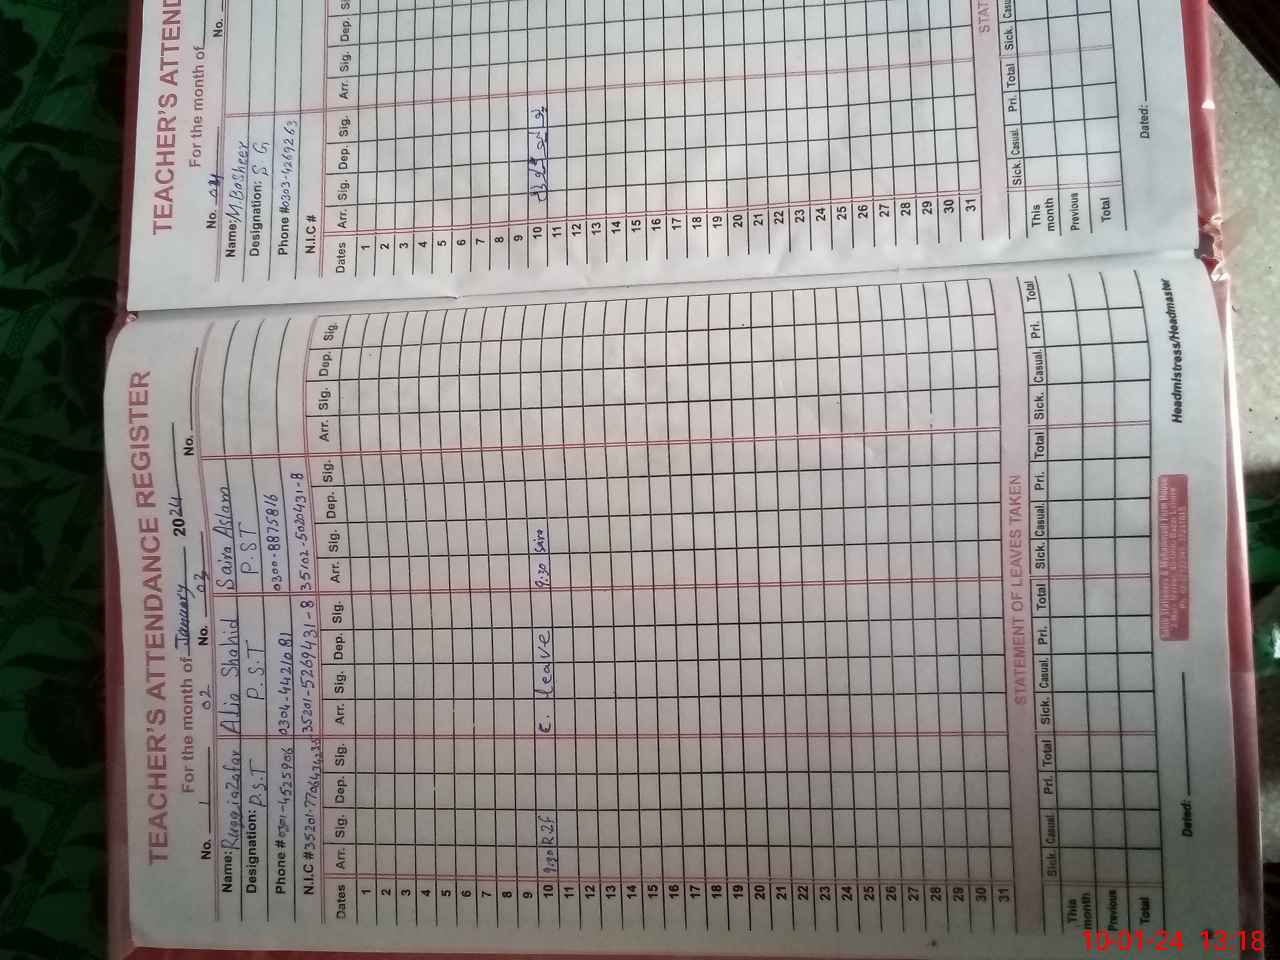 TEACHER'S ATTENDANCE REGISTER
For the month of January 2024
No. 1 No. 02 No. 03 No.
Name: Ruqqia Zafar Alia Shahid Saira Aslam
Designation: P.S.T P.S.T P.ST
Phone # 0301-4525906 0304-4421081 0300-8875816
N.I.C # 35201-5269431-8 35102-5020431-8
Dates Arr. Sig. Dep. Sig. Arr. Sig. Dep. Sig. Arr. Sig. Dep. Sig. Arr. Sig. Dep. Sig.
1
2
3
4
5
6
7
8
9
10 9:30 R.Zf C. leave 9:30 Saira
11
12
13
14
15
16
17
18
19
20
21
22
23
24
25
26
27
28
29
30
31
STATEMENT OF LEAVES TAKEN
Sick. Casual. Pri. Total Sick. Casual. Pri. Total Sick. Casual. Pri. Total Sick. Casual. Pri. Total
This month
Previous
Total
Dated:
Headmistress/Headmaster
TEACHER'S ATTEND
For the month of
No. 04 No.
Name: M.Basheer
Designation: S G
Phone # 0303-4269263
N.I.C #
Dates Arr. Sig. Dep. Sig. Arr. Sig. Dep.
1
2
3
4
5
6
7
8
9
10
11
12
13
14
15
16
17
18
19
20
21
22
23
24
25
26
27
28
29
30
31
STAT
Sick. Casual. Pri. Total Sick. Casu
This month
Previous
Total
Dated:
10-01-24 13:18